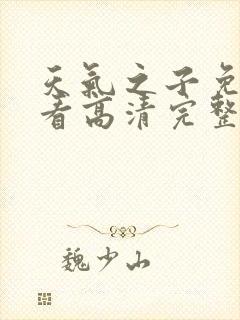 天氣之子免
看高清完整
魏少山